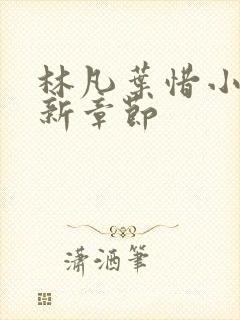 林凡葉惜小
新章節
瀟洒筆